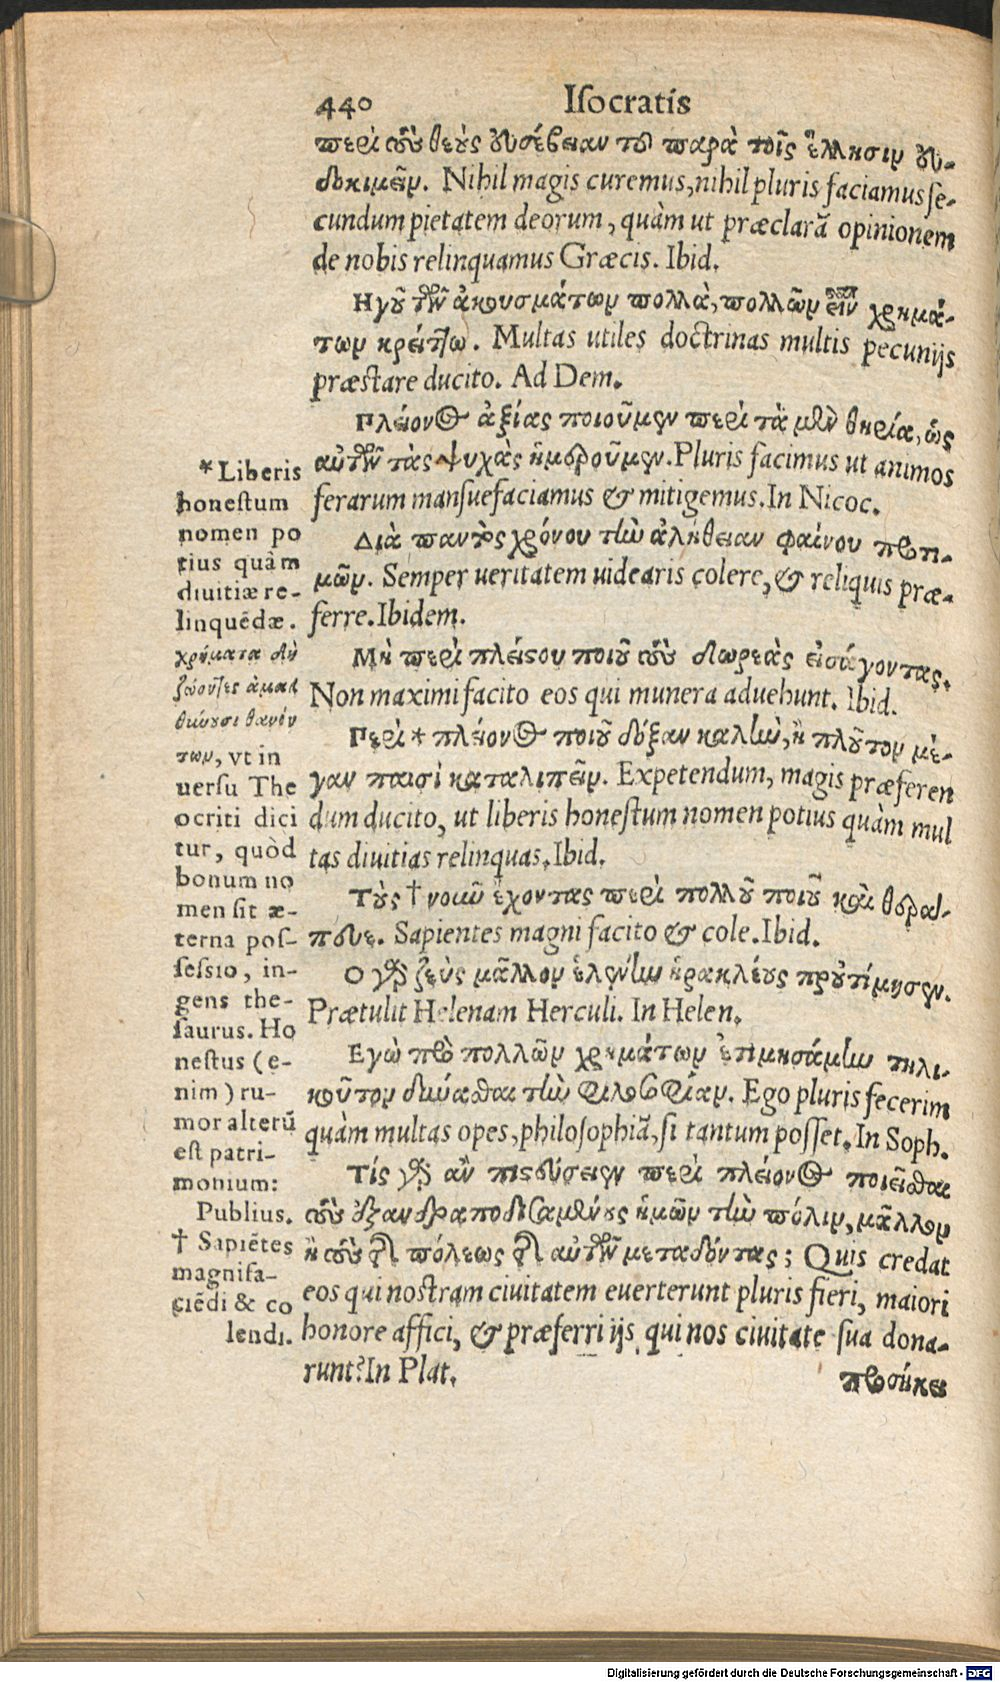 440 Iſocratis
περὶ τοὺς θεοὺς εὐσέβειαν τοῦ παρὰ τοῖς ἕλλησιν εὐ-
δοκιμεῖν. Nihil magis curemus, nihil pluris faciamus ſe-
cundum pietatem deorum, quàm ut præclarā opinionem
de nobis relinquamus Græcis. Ibid.
Ηγοῦ τῶν ἀκουσμάτων πολλὰ, πολλῶν εἶναι χρημά-
των κρείττω. Multas utiles doctrinas multis pecunijs
præstare ducito. Ad Dem.
Πλείονος ἀξίας ποιοῦμεν περὶ τὰ μὲν θηρία, ὡς
αὐτῶν τὰς ψυχὰς ἡμεροῦμεν. Pluris facimus ut animos
ferarum manſuefaciamus & mitigemus. In Nicoc.
Διὰ παντὸς χρόνου τὴν ἀλήθειαν φαίνου προτι-
μῶν. Semper ueritatem uidearis colere, & reliquis præ-
ferre. Ibidem.
Μὴ περὶ πλείστου ποιοῦ τοὺς δωρεὰς εἰσάγοντας.
Non maximi facito eos qui munera aduehunt. Ibid.
Περὶ * πλείονος ποιοῦ δόξαν καλὴν, ἢ πλοῦτον μέ-
γαν παισὶ καταλιπεῖν. Expetendum, magis præferen
dum ducito, ut liberis honeſtum nomen potius quàm mul
tas diuitias relinquas. Ibid.
Τοὺς † νοῦν ἔχοντας περὶ πολλοῦ ποιοῦ καὶ θεράπ-
πευε. Sapientes magni facito & cole. Ibid.
Ο γὰρ ζεὺς μᾶλλον ἑλένην ἡρακλέους προὐτίμησεν.
Prætulit Helenam Herculi. In Helen.
Εγὼ πρὸ πολλῶν χρημάτων ἐτιμησάμην τηλι-
κοῦτον δύνασθαι τὴν φιλοσοφίαν. Ego pluris fecerim
quàm multas opes, philoſophiā, ſi tantum poſſet. In Soph.
Τίς γὰρ ἂν πιστεύσειεν περὶ πλείονος ποιεῖσθαι
τοὺς ἐξανδραποδισαμένους ἡμῶν τὴν πόλιν, μᾶλλον
ἢ τοὺς τῆς πόλεως τῆς αὐτῶν μεταδόντας; Quis credat
eos qui nostram ciuitatem euerterunt pluris fieri, maiori
honore affici, & præferri ijs qui nos ciuitate ſua dona-
runt? In Plat.
προσήκει
* Liberis
honeſtum
nomen po
tius quàm
diuitiæ re-
linquēdæ.
χρήματα δὲ
ζώοντες ἀμαλ
θύνουσι θανόν
των, vt in
uerſu The
ocriti dici
tur, quòd
bonum no
men ſit æ-
terna poſ-
ſeſsio, in-
gens the-
ſaurus. Ho
neſtus (e-
nim) ru-
mor alterū
eſt patri-
monium:
Publius.
† Sapiētes
magnifa-
ciēdi & co
lendi.
Digitalisierung gefördert durch die Deutsche Forschungsgemeinschaft - DFG